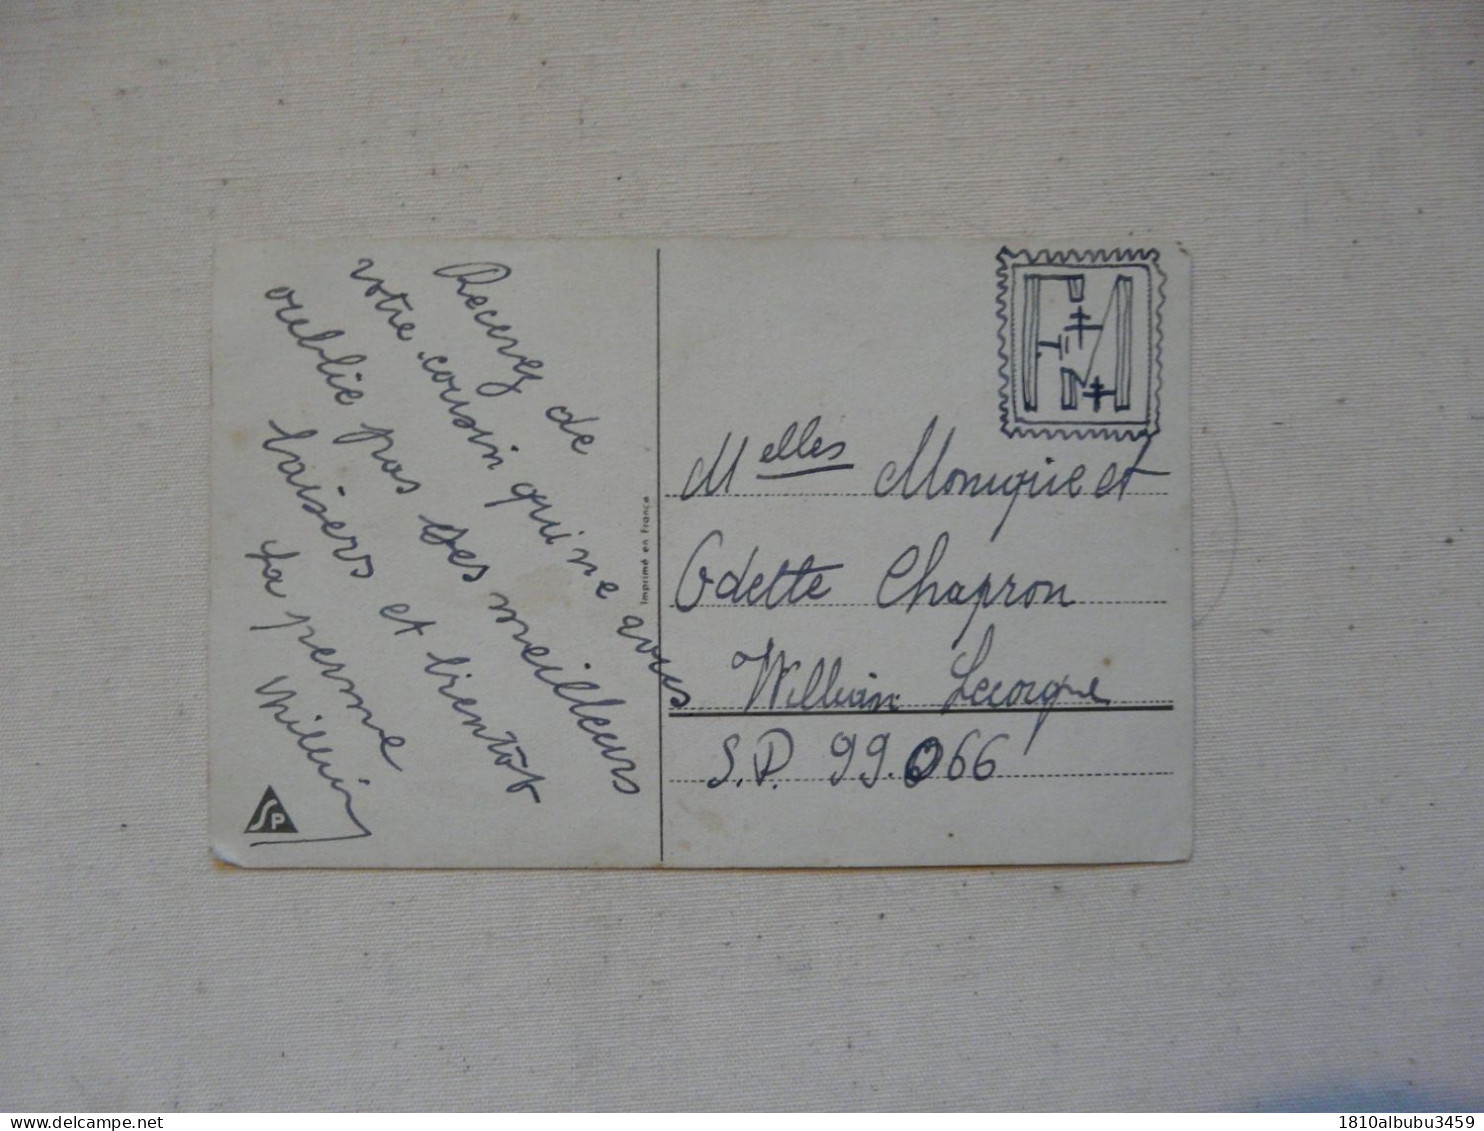 Recevez de
votre cousin qui ne vous
oublie pas ses meilleurs
baisers et bientôt
la perme
Imprimé en France
SP
Melles Monique et
Odette Chapron
William Lecorgne
S.P. 99.066
1810albubu3459